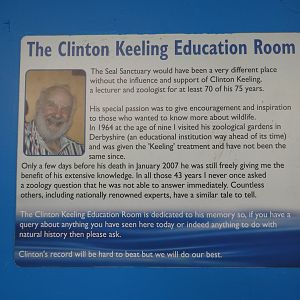 The Clinton Keeling Education Room
The Seal Sanctuary would have been a very different place
without the influence and support of Clinton Keeling,
a lecturer and zoologist for at least 70 of his 75 years.
His special passion was to give encouragement and inspiration
to those who wanted to know more about wildlife.
In 1964 at the age of nine I visited his zoological gardens in
Derbyshire (an educational institution way ahead of its time)
and was given the 'Keeling' treatment and have not been the
same since.
Only a few days before his death in January 2007 he was still freely giving me the
benefit of his extensive knowledge. In all those 43 years I never once asked
a zoology question that he was not able to answer immediately. Countless
others, including nationally renowned experts, have a similar tale to tell.
The Clinton Keeling Education Room is dedicated to his memory so, if you have a
query about anything you have seen here today or indeed anything to do with
natural history then please ask.
Clinton's record will be hard to beat but we will do our best.